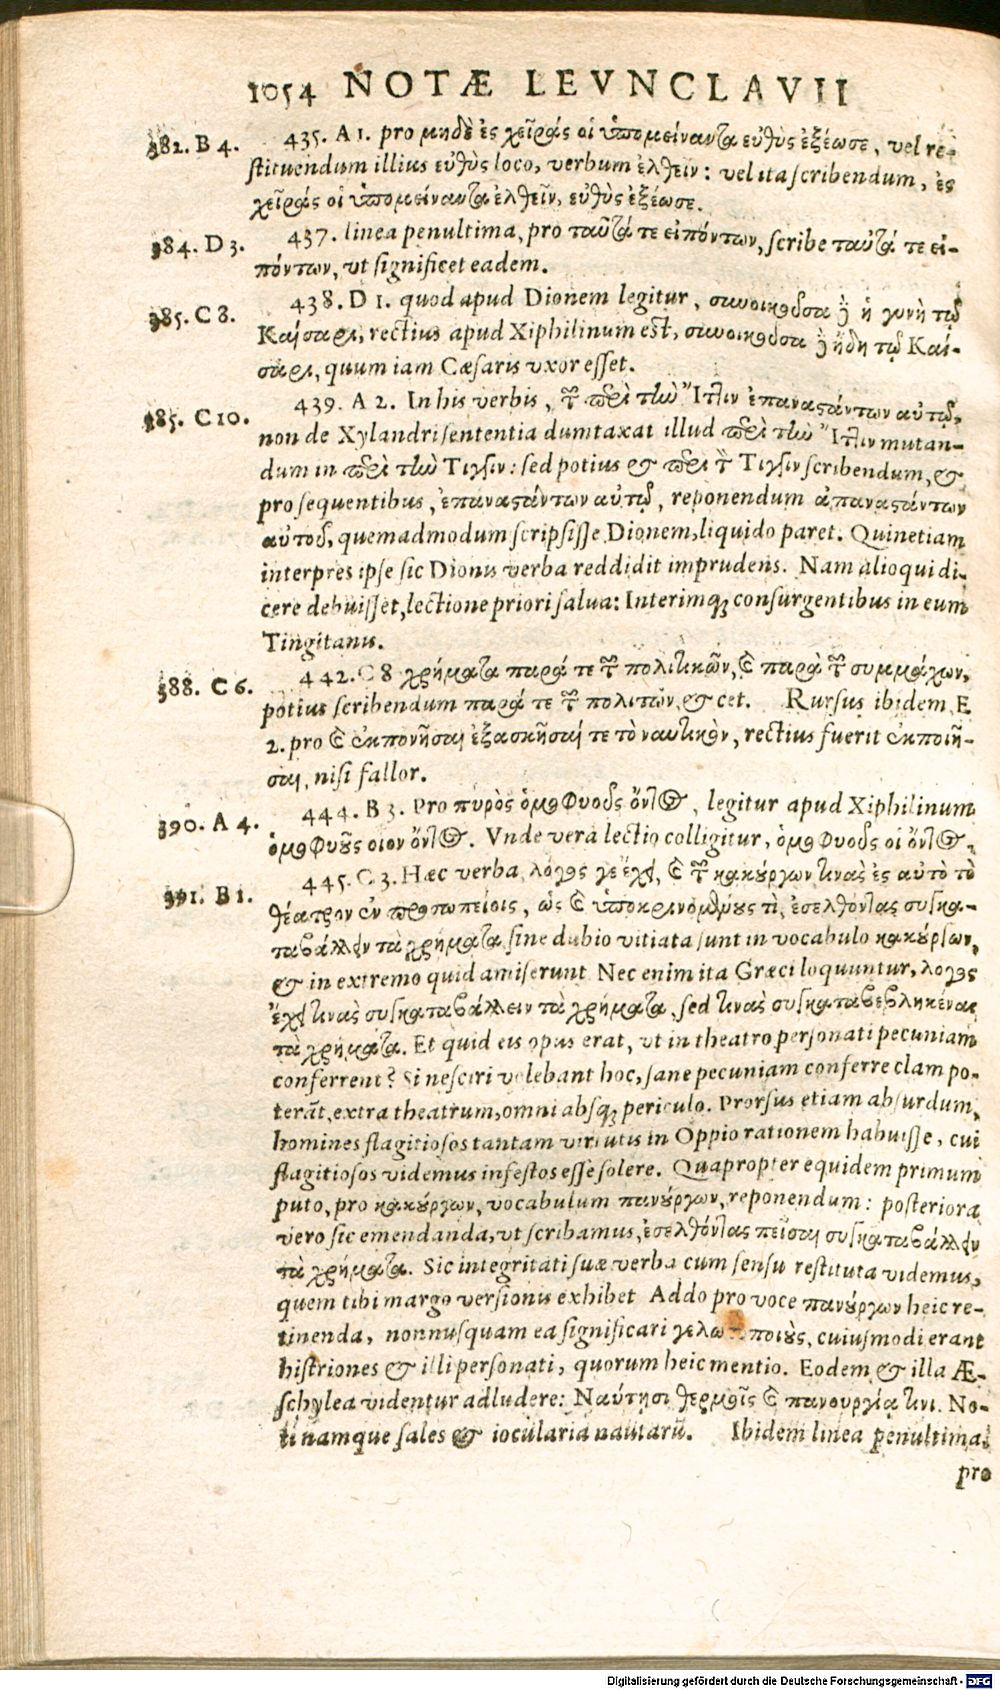 1054 NOTÆ LEVNCLAVII
382. B 4. 435. A 1. pro μηδὲ ἐς χεῖράς οἱ ὑπομείναντα εὐθὺς ἐξέωσε, vel re-
stituendum illius εὐθὺς loco, verbum ἐλθεῖν: vel ita scribendum, ἐς
χεῖράς οἱ ὑπομείναντα ἐλθεῖν, εὐθὺς ἐξέωσε.
384. D 3. 437. linea penultima, pro ταῦτά τε εἰπόντων, scribe ταὐτά τε εἰ-
πόντων, vt significet eadem.
385. C 8. 438. D 1. quod apud Dionem legitur, συνοικοῦσα δὲ ἡ γυνὴ τῷ
Καίσαρι, rectius apud Xiphilinum est, συνοικοῦσα δὲ ἤδη τῷ Καί-
σαρι, quum iam Cæsaris vxor esset.
385. C 10. 439. A 2. In his verbis, τῶν περὶ τὴν Ἴτλιν ἐπαναστάντων αὐτῷ,
non de Xylandri sententia dumtaxat illud περὶ τὴν Ἴτλιν mutan-
dum in περὶ τὴν Τιγγιν: sed potius & περὶ τὴν Τιγγιν scribendum, &
pro sequentibus, ἐπαναστάντων αὐτῷ, reponendum ἀπαναστάντων
αὐτοῦ, quemadmodum scripsisse Dionem, liquido paret. Quinetiam
interpres ipse sic Dionis verba reddidit imprudens. Nam alioqui di-
cere debuisset, lectione priori salua: Interimq; consurgentibus in eum
Tingitanis.
388. C 6. 442. C 8 χρήματα παρά τε τῶν πολιτικῶν, καὶ παρὰ τῶν συμμάχων,
potius scribendum παρά τε τῶν πολιτῶν, & cet. Rursus ibidem E
2. pro καὶ ἐκπονῆσαι ἐξασκῆσαί τε τὸ ναυτικὸν, rectius fuerit ἐκποιῆ-
σαι, nisi fallor.
390. A 4. 444. B 3. Pro πυρὸς ὁμοφυοῦς ὄντος, legitur apud Xiphilinum
ὁμοφυοῦς οἷον ὄντος. Vnde vera lectio colligitur, ὁμοφυοῦς οἱ ὄντος.
391. B 1. 445. C 3. Hæc verba, λόγος γε ἔχει, καὶ τῶν κακούργων τινὰς ἐς αὐτὸ τὸ
θέατρον ἐν προσωπείοις, ὡς καὶ ὑποκρινομένους τὶ, ἐσελθόντας συγκα-
ταβάλλειν τὰ χρήματα, sine dubio vitiata sunt in vocabulo κακούργων,
& in extremo quid amiserunt. Nec enim ita Græci loquuntur, λόγος
ἔχει τινὰς συγκαταβάλλειν τὰ χρήματα, sed τινὰς συγκαταβεβληκέναι
τὰ χρήματα. Et quid eis opus erat, vt in theatro personati pecuniam
conferrent? Si nesciri volebant hoc, sane pecuniam conferre clam po-
terāt, extra theatrum, omni absq; periculo. Prorsus etiam absurdum,
homines flagitiosos tantam virtutis in Oppio rationem habuisse, cui
flagitiosos videmus infestos esse solere. Quapropter equidem primum
puto, pro κακούργων, vocabulum πανούργων, reponendum: posteriora
vero sic emendanda, vt scribamus, ἐσελθόντας πεῖσαι συγκαταβάλλειν
τὰ χρήματα. Sic integritati suæ verba cum sensu restituta videmus,
quem tibi margo versionis exhibet Addo pro voce πανούργων heic re-
tinenda, nonnusquam ea significari γελωτοποιοὺς, cuiusmodi erant
histriones & illi personati, quorum heic mentio. Eodem & illa Æ-
schylea videntur adludere: Ναύτησι θερμοῖς καὶ πανουργία τινι. No-
ti namque sales & iocularia nautarū. Ibidem linea penultima,
pro
Digitalisierung gefördert durch die Deutsche Forschungsgemeinschaft - DFG